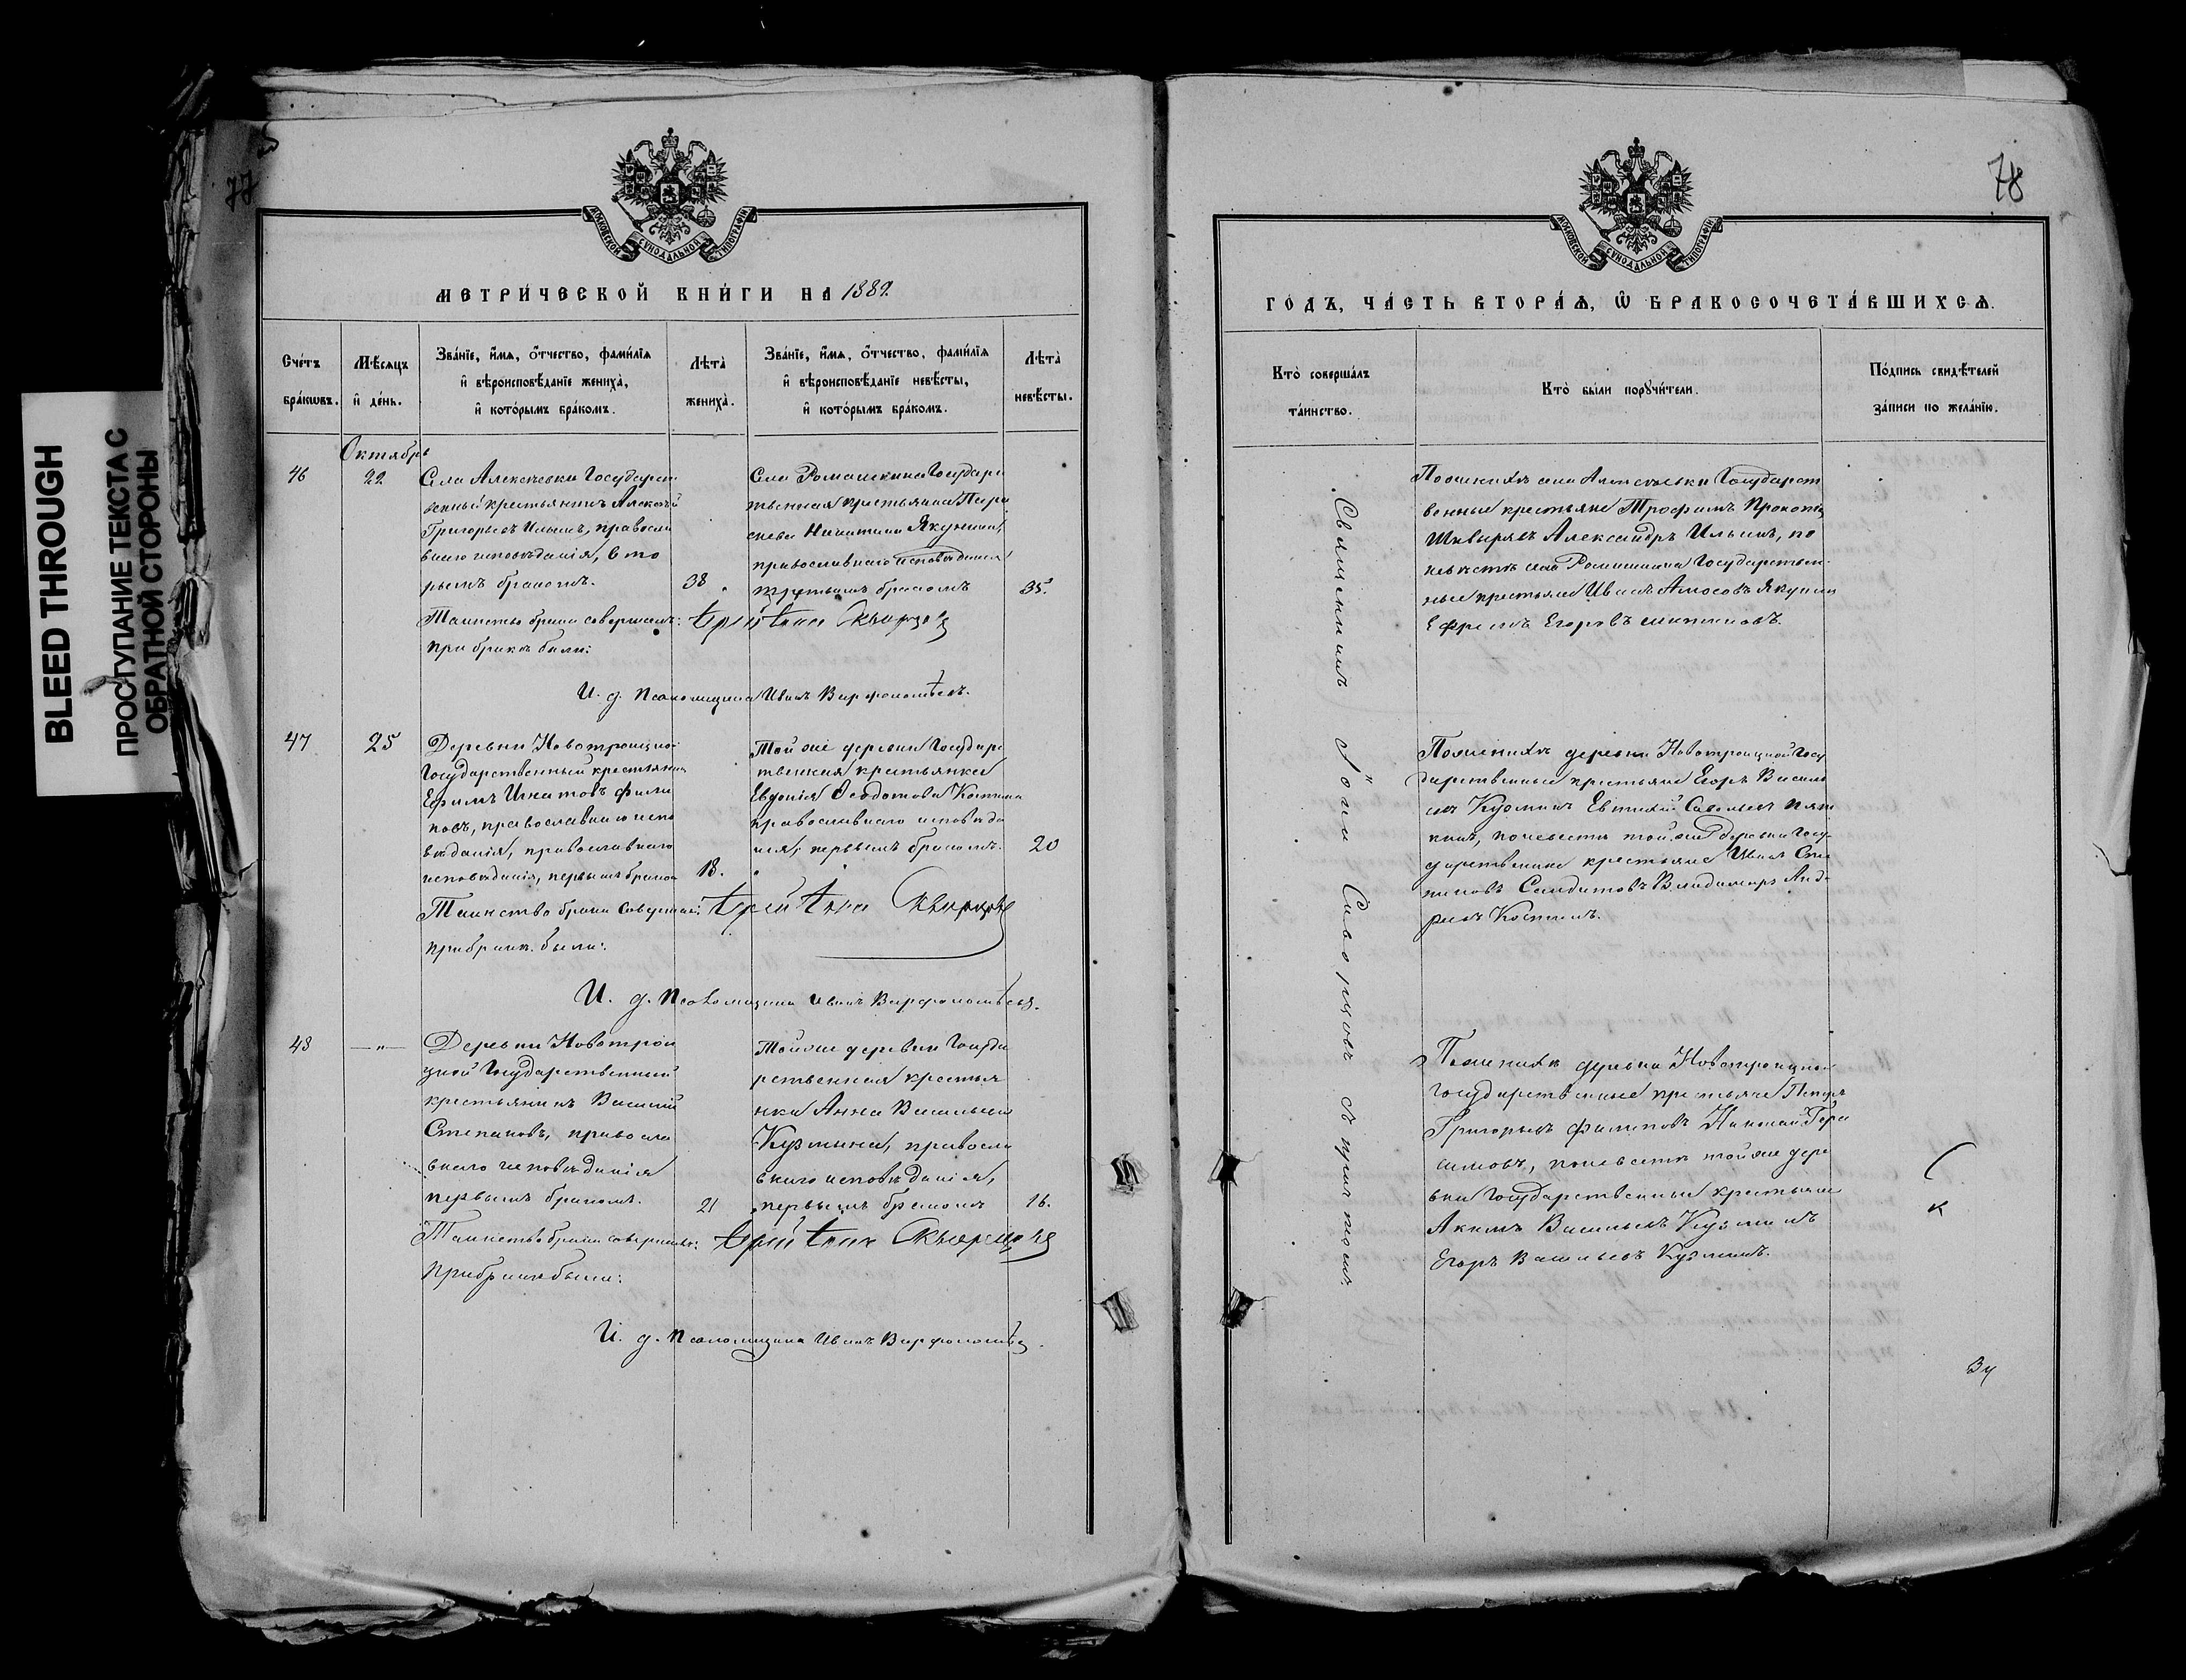 BLEED THROUGH
ПРОСТУПАНИЕ ТЕКСТА С
ОБРАТНОЙ СТОРОНЫ
77
МОСКОВСКОЙ СѴНОДАЛЬНОЙ ТИПОГРАФІИ
МЕТРИ́ЧЕСКОЙ КНИ́ГИ НА 1889.
Сче́тъ бра́кѡвъ.
Мѣ́сяцъ и҆ де́нь.
Зва́нїе, и҆́мѧ, ѻ҆́тчество, фами́лїѧ
и҆ вѣроисповѣ́данїе жениха̀,
и҆ кото́рымъ бра́комъ.
Лѣ́та жениха̀.
Зва́нїе, и҆́мѧ, ѻ҆́тчество, фами́лїѧ
и҆ вѣроисповѣ́данїе невѣ́сты,
и҆ кото́рымъ бра́комъ.
Лѣ́та невѣ́сты.
Октябрь
46
22
Села Алексѣевки Государст
венный крестьянинъ Алексѣй
Григорьевъ Ильинъ, правосла
внаго исповѣданія, вто
рымъ бракомъ.
38
Села Ромашкина Государс
твенная крестьянка
Никитина Якунина,
православнаго исповѣданія
третьимъ бракомъ
35.
Таинство брака совершалъ: Іерей Іона Скворцовъ
при бракѣ были:
И. д. Псаломщика Иванъ Варфоломѣевъ.
47
25
Деревни Новотроицкой
Государственный крестьянинъ
Ефимъ Игнатовъ Фили
повъ, православнаго испо
вѣданія, православнаго
исповѣданія, первымъ бракомъ
18.
Той же деревни Государс
твенная крестьянка
Евдокія Ѳеодотова Костина
православнаго исповѣда
нія, первымъ бракомъ.
20
Таинство брака совершалъ: Іерей Іона Скворцовъ
при бракѣ были:
И. д. Псаломщика Иванъ Варфоломѣевъ.
48
—"—
Деревни Новотрои
цкой Государственный
крестьянинъ Василій
Степановъ, правосла
внаго исповѣданія
первымъ бракомъ.
21
Той же деревни Госуда
рственная крестья
нка Анна Васильева
Кузмина, правосла
внаго исповѣданія,
первымъ бракомъ
16.
Таинство брака совершалъ: Іерей Іона Скворцовъ
при бракѣ были:
И. д. Псаломщика Иванъ Варфоломѣевъ
78
МОСКОВСКОЙ СѴНОДАЛЬНОЙ ТИПОГРАФІИ
ГО́ДЪ, ЧА́СТЬ ВТОРА́Ѧ, Ѽ БРАКОСОЧЕТА́ВШИХСѦ.
Кто̀ соверша́лъ
та́инство.
Кто̀ бы́ли порꙋчи́тели.
По́дпись свидѣ́телей
за́писи по жела́нїю.
Священникъ Іона Скворцовъ съ причтомъ.
По женихѣ села Алексѣевки Государст
венные крестьяне Трофимъ Прокопіевъ
Александръ Ильинъ, по
невѣстѣ села Ромашкина Государствен
ные крестьяне Иванъ Амосовъ Якунинъ
Ефремъ Егоровъ
По женихѣ деревни Новотроицкой Госу
дарственные крестьяне Егоръ Василь
евъ Кузминъ Евтихій Савельевъ
по невѣстѣ той же деревни Госу
дарственные крестьяне Иванъ Сте
пановъ Владимиръ Анд
реевъ Костинъ.
По женихѣ деревни Новотроицкой
Государственные крестьяне Петръ
Григорьевъ Филиповъ Николай Гера
симовъ, по невѣстѣ той же дере
вни Государственные крестьяне
Акимъ Васильевъ Кузминъ
Егоръ Васильевъ Кузминъ.